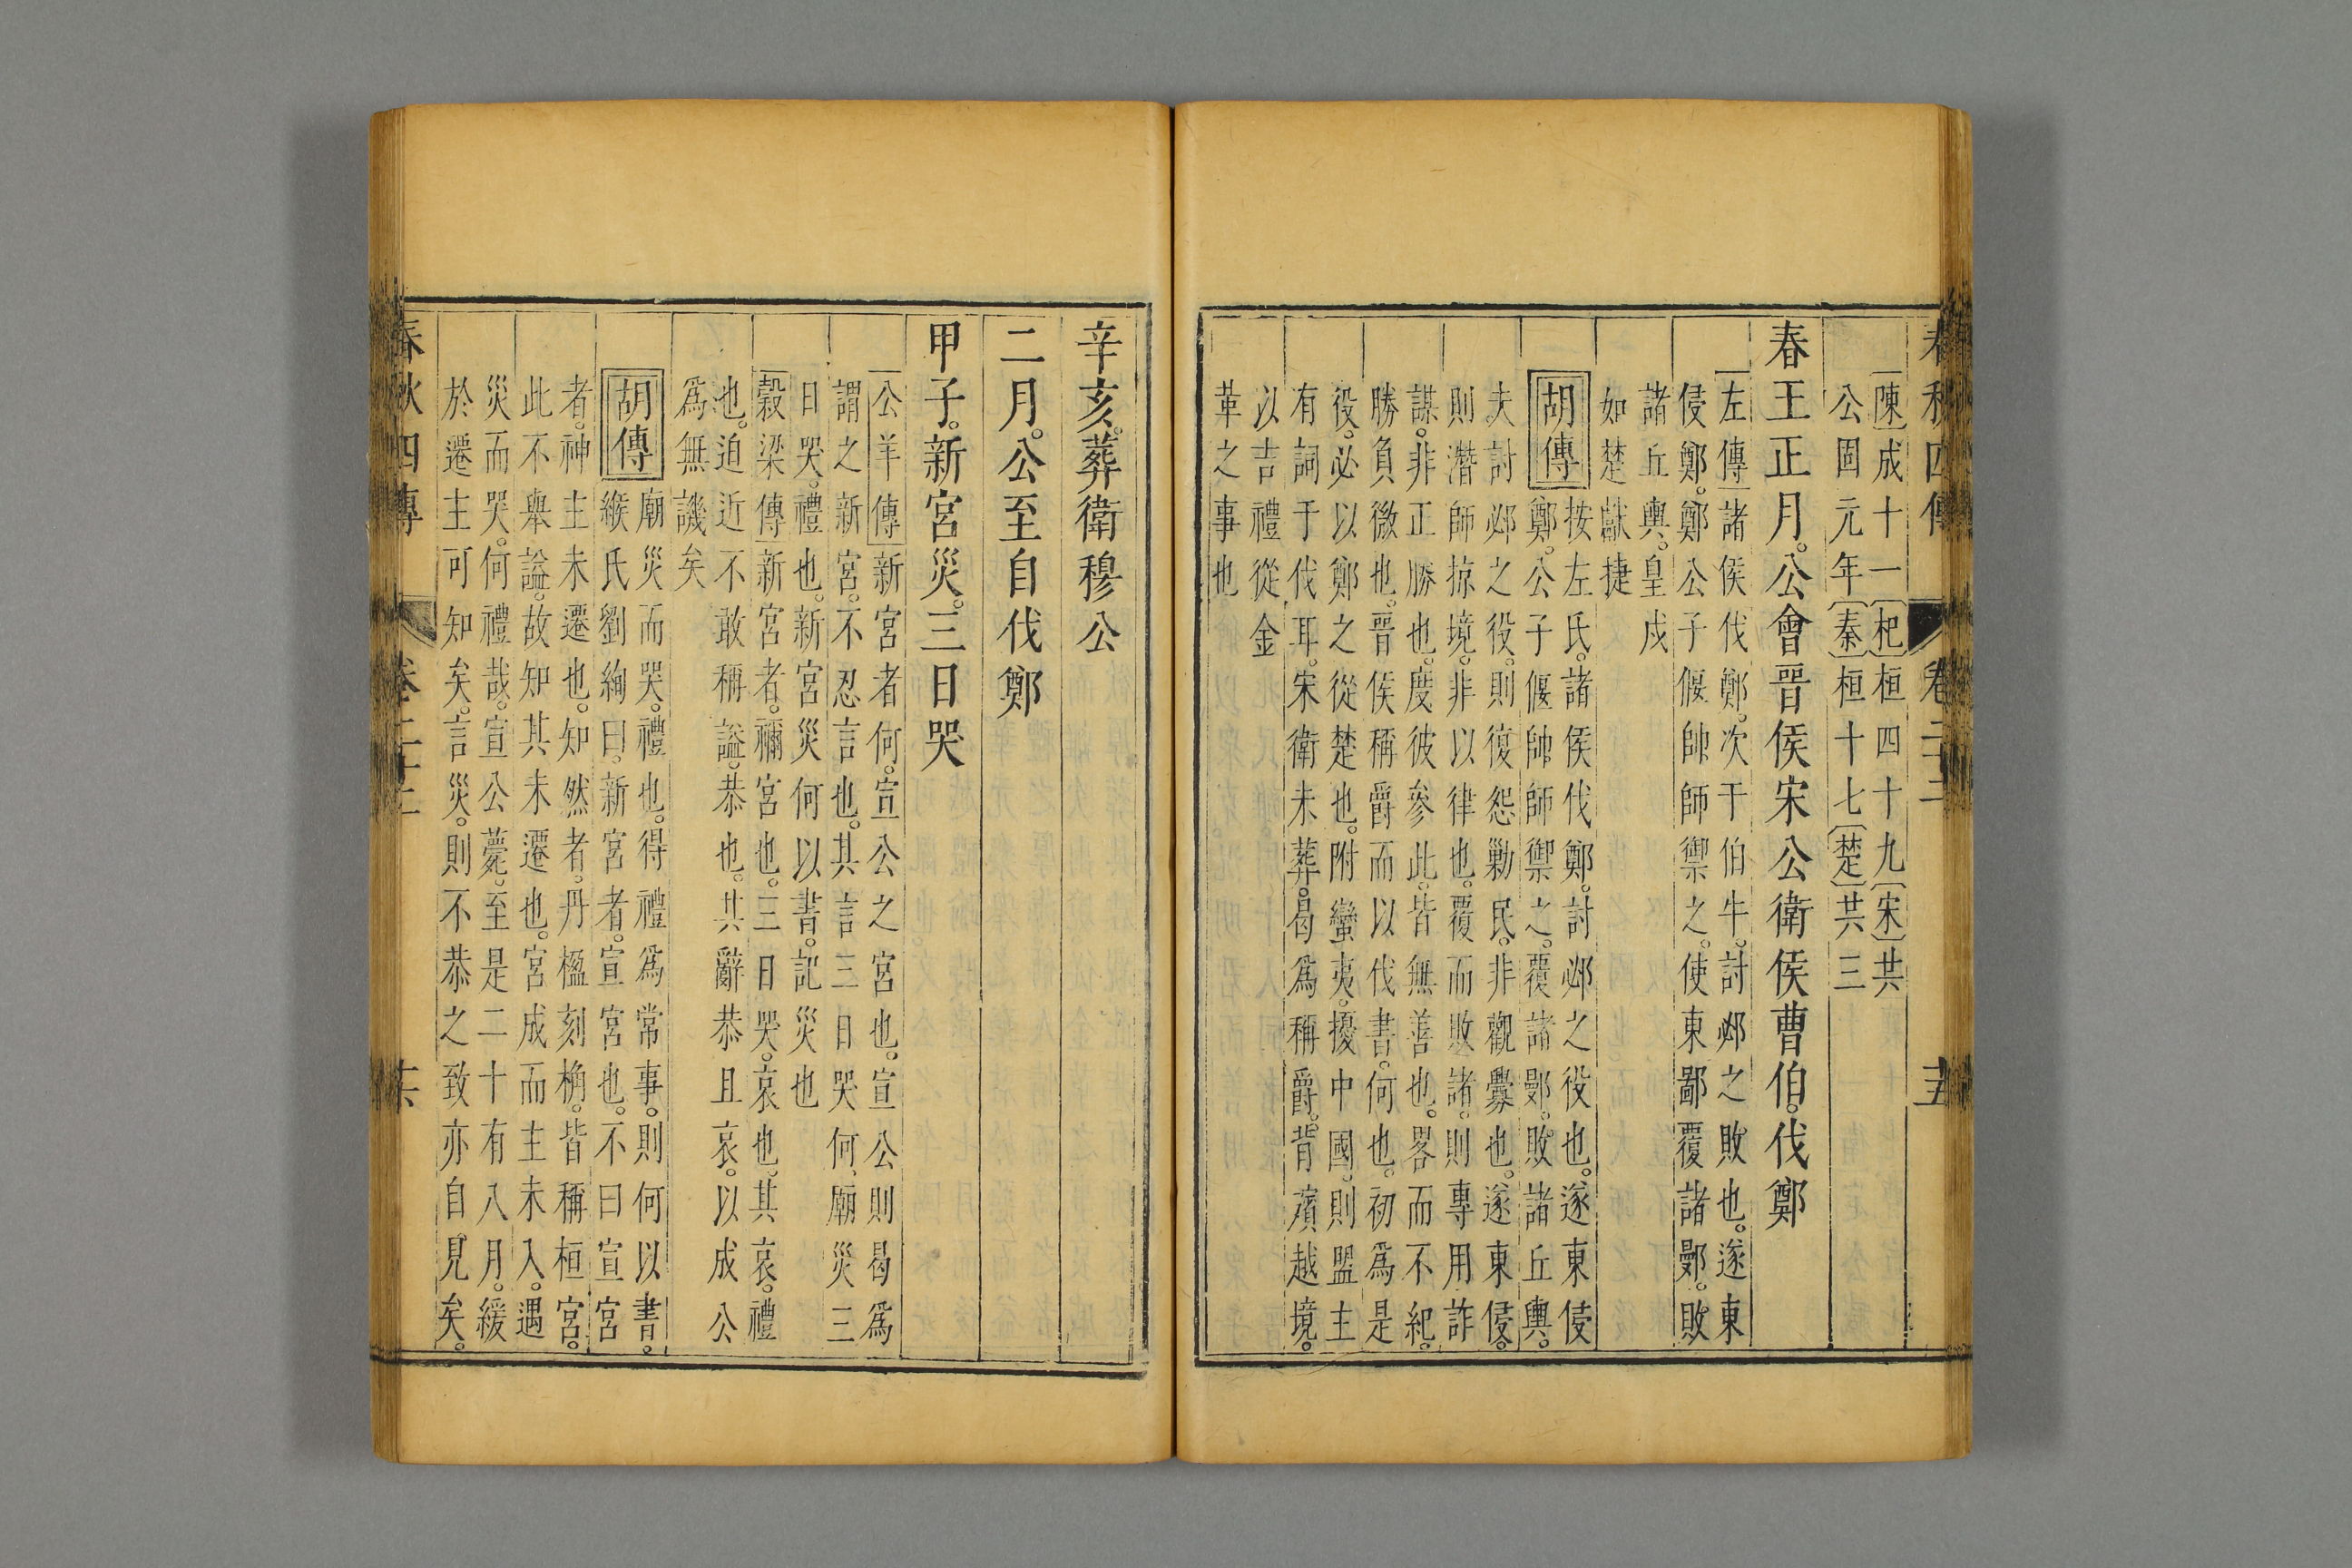 春秋四傳 卷二十二 十五
〔陳〕成十一〔杞〕桓四十九〔宋〕共
公固元年〔秦〕桓十七〔楚〕共三
春王正月。公會晉侯宋公衛侯曹伯。伐鄭
左傳 諸侯伐鄭。次于伯牛。討邲之敗也。遂東
侵鄭。鄭公子偃帥師禦之。使東鄙覆諸鄤。敗
諸丘輿。皇戌
如楚獻捷
胡傳 按左氏。諸侯伐鄭。討邲之役也。遂東侵
鄭。公子偃帥師禦之。覆諸鄤。敗諸丘輿。
夫討邲之役。則復怨勦民。非觀釁也。遂東侵。
則潛師掠境。非以律也。覆而敗諸。則專用詐
謀。非正勝也。度彼參此。皆無善也。畧而不紀。
勝負微也。晉侯稱爵而以伐書。何也。初為是
役。必以鄭之從楚也。附蠻夷。擾中國。則盟主
有詞于伐耳。宋衛未葬。曷為稱爵。背殯越境。
以吉禮從金
革之事也
辛亥。葬衛穆公
二月。公至自伐鄭
甲子。新宮災。三日哭
公羊傳 新宮者何。宣公之宮也。宣公則曷為
謂之新宮。不忍言也。其言三日哭何。廟災三
日哭。禮也。新宮災何以書。記災也
穀梁傳 新宮者。禰宮也。三日哭。哀也。其哀。禮
也。迫近不敢稱謚。恭也。其辭恭且哀。以成公
為無譏矣
胡傳 廟災而哭。禮也。得禮為常事。則何以書。
緱氏劉絢曰。新宮者。宣宮也。不曰宣宮
者。神主未遷也。知然者。丹楹刻桷。皆稱桓宮。
此不舉謚。故知其未遷也。宮成而主未入。遇
災而哭。何禮哉。宣公薨。至是二十有八月。緩
於遷主可知矣。言災。則不恭之致亦自見矣。
春秋四傳 卷二十二 十六